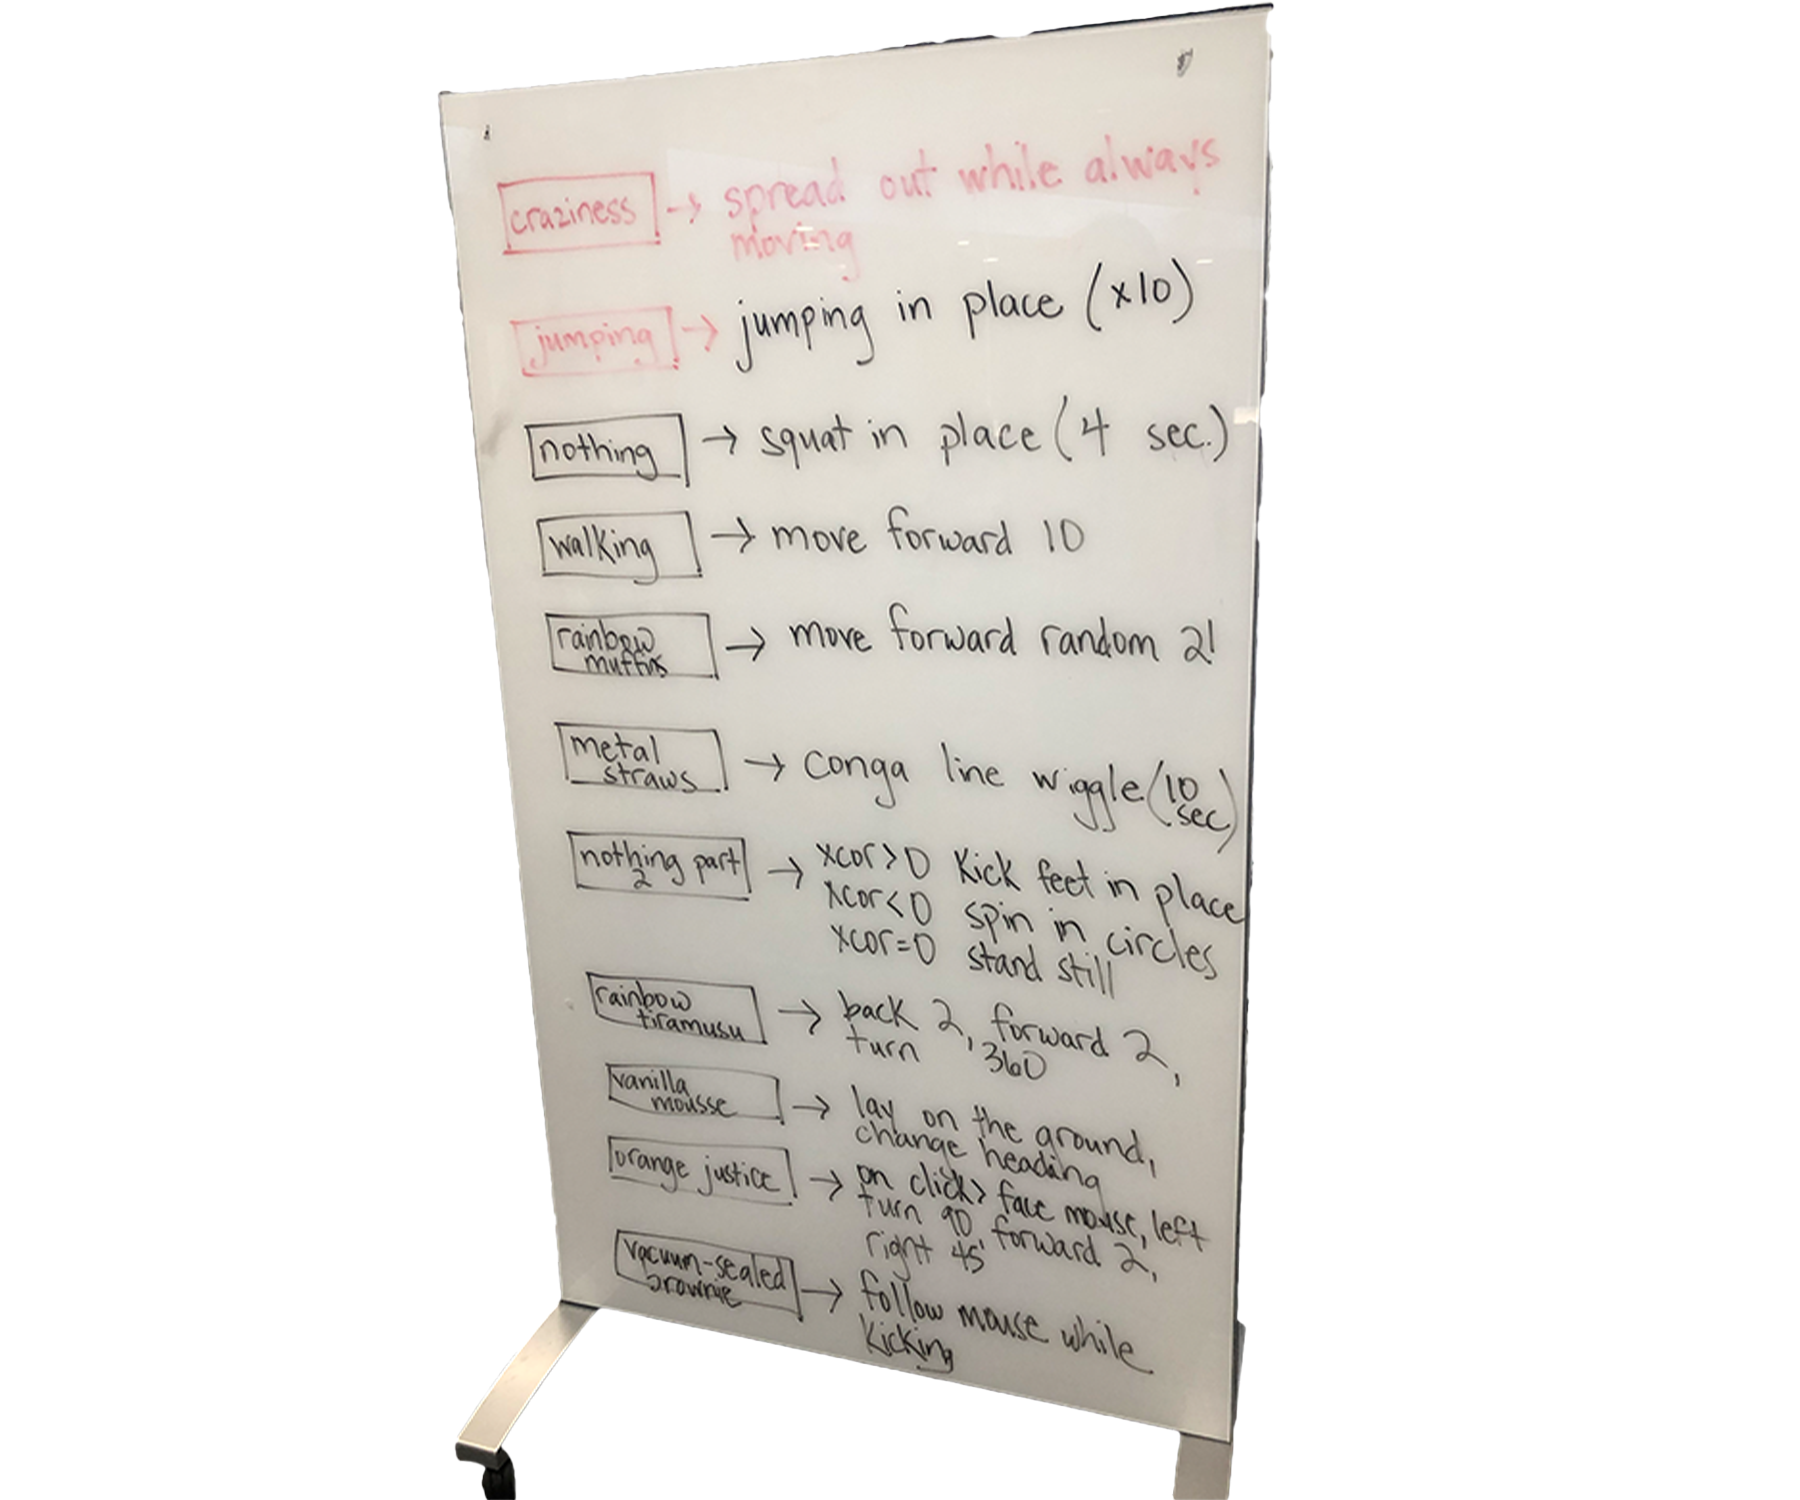 craziness → spread out while always
moving
jumping → jumping in place (x10)
nothing → squat in place (4 sec.)
walking → move forward 10
rainbow
muffins → move forward random 21
metal
straws → conga line wiggle (10
sec)
nothing part
2 → xcor>0 kick feet in place
xcor<0 spin in circles
xcor=0 stand still
rainbow
tiramusu → back 2, forward 2,
turn 360
vanilla
mousse → lay on the ground,
change heading
orange justice → on click> face mouse, left
turn 90 forward 2,
right 45
vacuum-sealed
brownie → follow mouse while
kicking